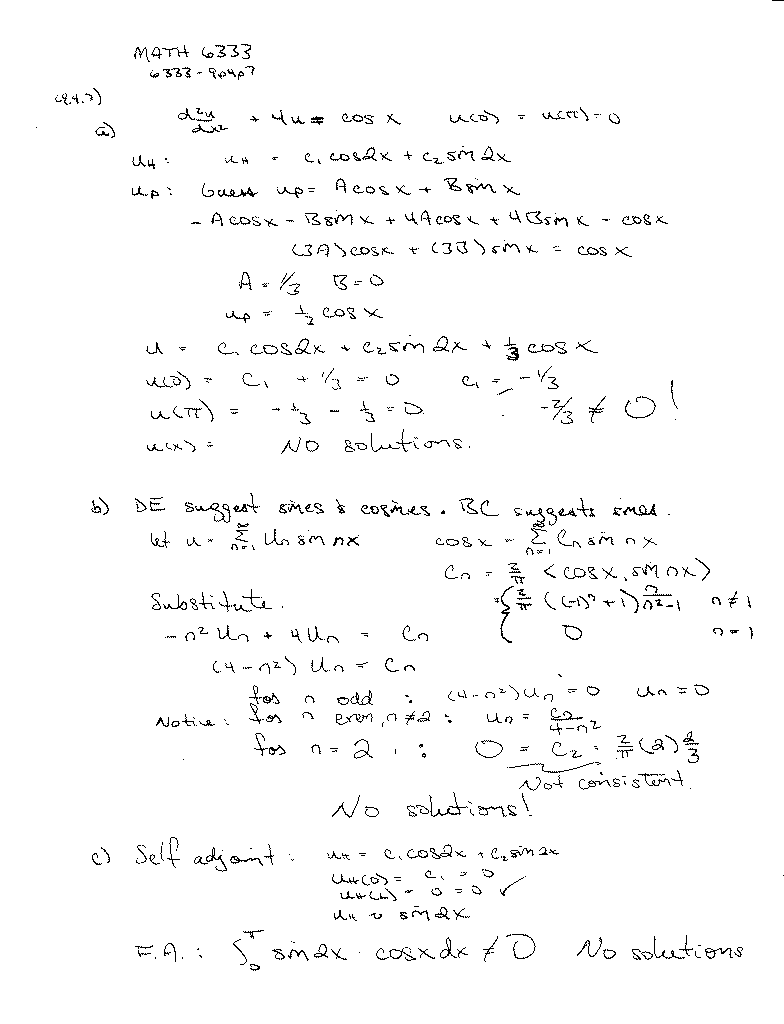 MATH 6333
6333-9p4p7
(9.4.7)
a) d²u/dx² + 4u = cos x u(0) = u(π) = 0
u_H: u_H = c₁ cos2x + c₂ sin 2x
u_p: Guess u_p = A cos x + B sin x
- A cos x - B sin x + 4A cos x + 4B sin x = cos x
(3A) cos x + (3B) sin x = cos x
A = 1/3 B = 0
u_p = ½ cos x
u = c₁ cos2x + c₂ sin 2x + 1/3 cos x
u(0) = c₁ + 1/3 = 0 c₁ = -1/3
u(π) = -1/3 - 1/3 = 0 -2/3 ≠ 0!
u(x) = NO solutions.
b) DE suggest sines & cosines. BC suggests sines.
let u = Σ_{n=1}^∞ U_n sin nx cos x = Σ_{n=1}^∞ C_n sin nx
C_n = 2/π <cos x, sin nx>
Substitute. = { 2/π ((-1)ⁿ + 1) n/(n²-1) n ≠ 1
-n² U_n + 4 U_n = C_n 0 n = 1
(4 - n²) U_n = C_n
for n odd : (4-n²) U_n = 0 U_n = 0
Notice: for n even, n≠2 : U_n = C_n/(4-n²)
for n = 2 : 0 = C₂ = 2/π (2) 2/3
Not consistent.
No solutions!
c) Self adjoint : u_H = c₁ cos2x + c₂ sin 2x
u_H(0) = c₁ = 0
u_H(L) = 0 = 0 ✓
u_H = sin 2x
F.A. : ∫₀^π sin 2x · cos x dx ≠ 0 No solutions